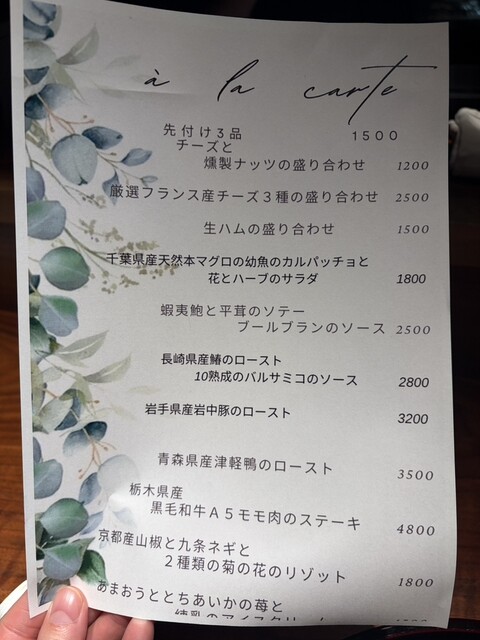 à la carte
先付け3品 1500
チーズと
燻製ナッツの盛り合わせ 1200
厳選フランス産チーズ3種の盛り合わせ 2500
生ハムの盛り合わせ 1500
千葉県産天然本マグロの幼魚のカルパッチョと
花とハーブのサラダ 1800
蝦夷鮑と平茸のソテー
ブールブランのソース 2500
長崎県産鰆のロースト
10熟成のバルサミコのソース 2800
岩手県産岩中豚のロースト 3200
青森県産津軽鴨のロースト 3500
栃木県産
黒毛和牛A5モモ肉のステーキ 4800
京都産山椒と九条ネギと
2種類の菊の花のリゾット 1800
あまおうととちあいかの苺と
練乳のアイスクリーム